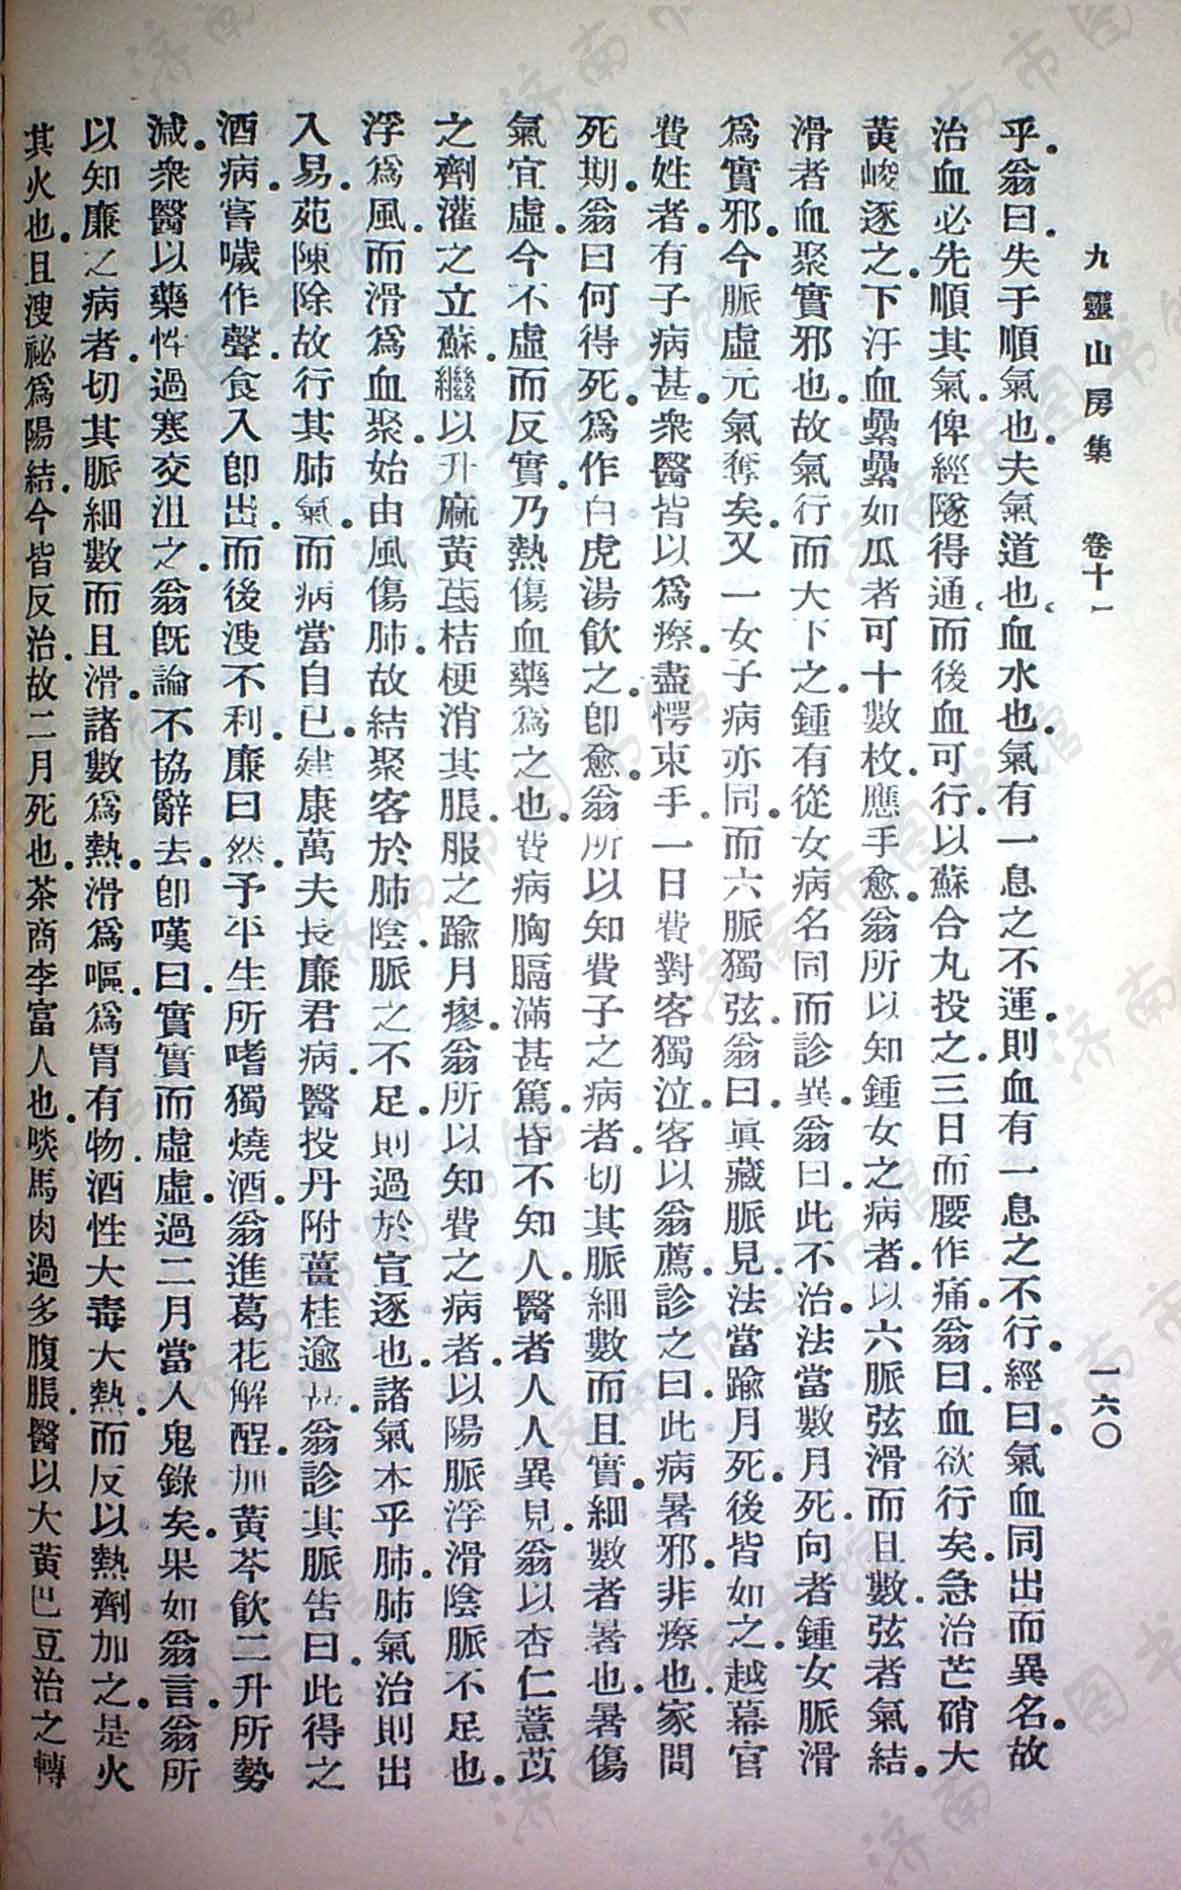 九靈山房集　卷十一　一六〇
乎。翁曰。失于順氣也。夫氣道也。血水也。氣有一息之不運。則血有一息之不行。經曰。氣血同出而異名。故
治血必先順其氣。俾經隧得通。而後血可行。以蘇合丸投之。三日而腰作痛。翁曰。血欲行矣。急治芒硝大
黃峻逐之。下汙血纍纍如瓜者可十數枚。應手愈。翁所以知鍾女之病者。以六脈弦滑而且數。弦者氣結。
滑者血聚實邪也。故氣行而大下之。鍾有從女病名同而診異。翁曰。此不治。法當數月死。向者鍾女脈滑
爲實邪。今脈虛元氣奪矣。又一女子病亦同。而六脈獨弦。翁曰。眞藏脈見。法當踰月死。後皆如之。越幕官
費姓者。有子病甚。衆醫皆以爲瘵。盡愕束手。一日費對客獨泣。客以翁薦。診之曰。此病暑邪。非瘵也。家問
死期。翁曰。何得死。爲作白虎湯飮之。卽愈。翁所以知費子之病者。切其脈細數而且實。細數者暑也。暑傷
氣宜虛。今不虛而反實。乃熱傷血藥爲之也。費病胸膈滿甚篤。昏不知人。醫者人人異見。翁以杏仁薏苡
之劑灌之立蘇。繼以升麻黃茋桔梗消其脹。服之踰月瘳。翁所以知費之病者。以陽脈浮滑陰脈不足也。
浮爲風。而滑爲血聚。始由風傷肺。故結聚客於肺陰。脈之不足。則過於宣逐也。諸氣本乎肺。肺氣治則出
入易。菀陳除故行其肺氣。而病當自已。建康萬夫長廉君病。醫投丹附薑桂逾甚。翁診其脈告曰。此得之
酒病。嘗噦作聲。食入卽出。而後溲不利。廉曰。然。予平生所嗜獨燒酒。翁進葛花解酲。加黃芩飮二升。所勢
減。衆醫以藥性過寒交沮之。翁旣論不協辭去。卽嘆曰。實實而虛虛。過二月當人鬼錄矣。果如翁言。翁所
以知廉之病者。切其脈細數而且滑。諸數爲熱。滑爲嘔。爲胃有物。酒性大毒大熱。而反以熱劑加之。是火
其火也。且溲祕爲陽結。今皆反治。故二月死也。茶商李富人也。啖馬肉過多腹脹。醫以大黃巴豆治之轉